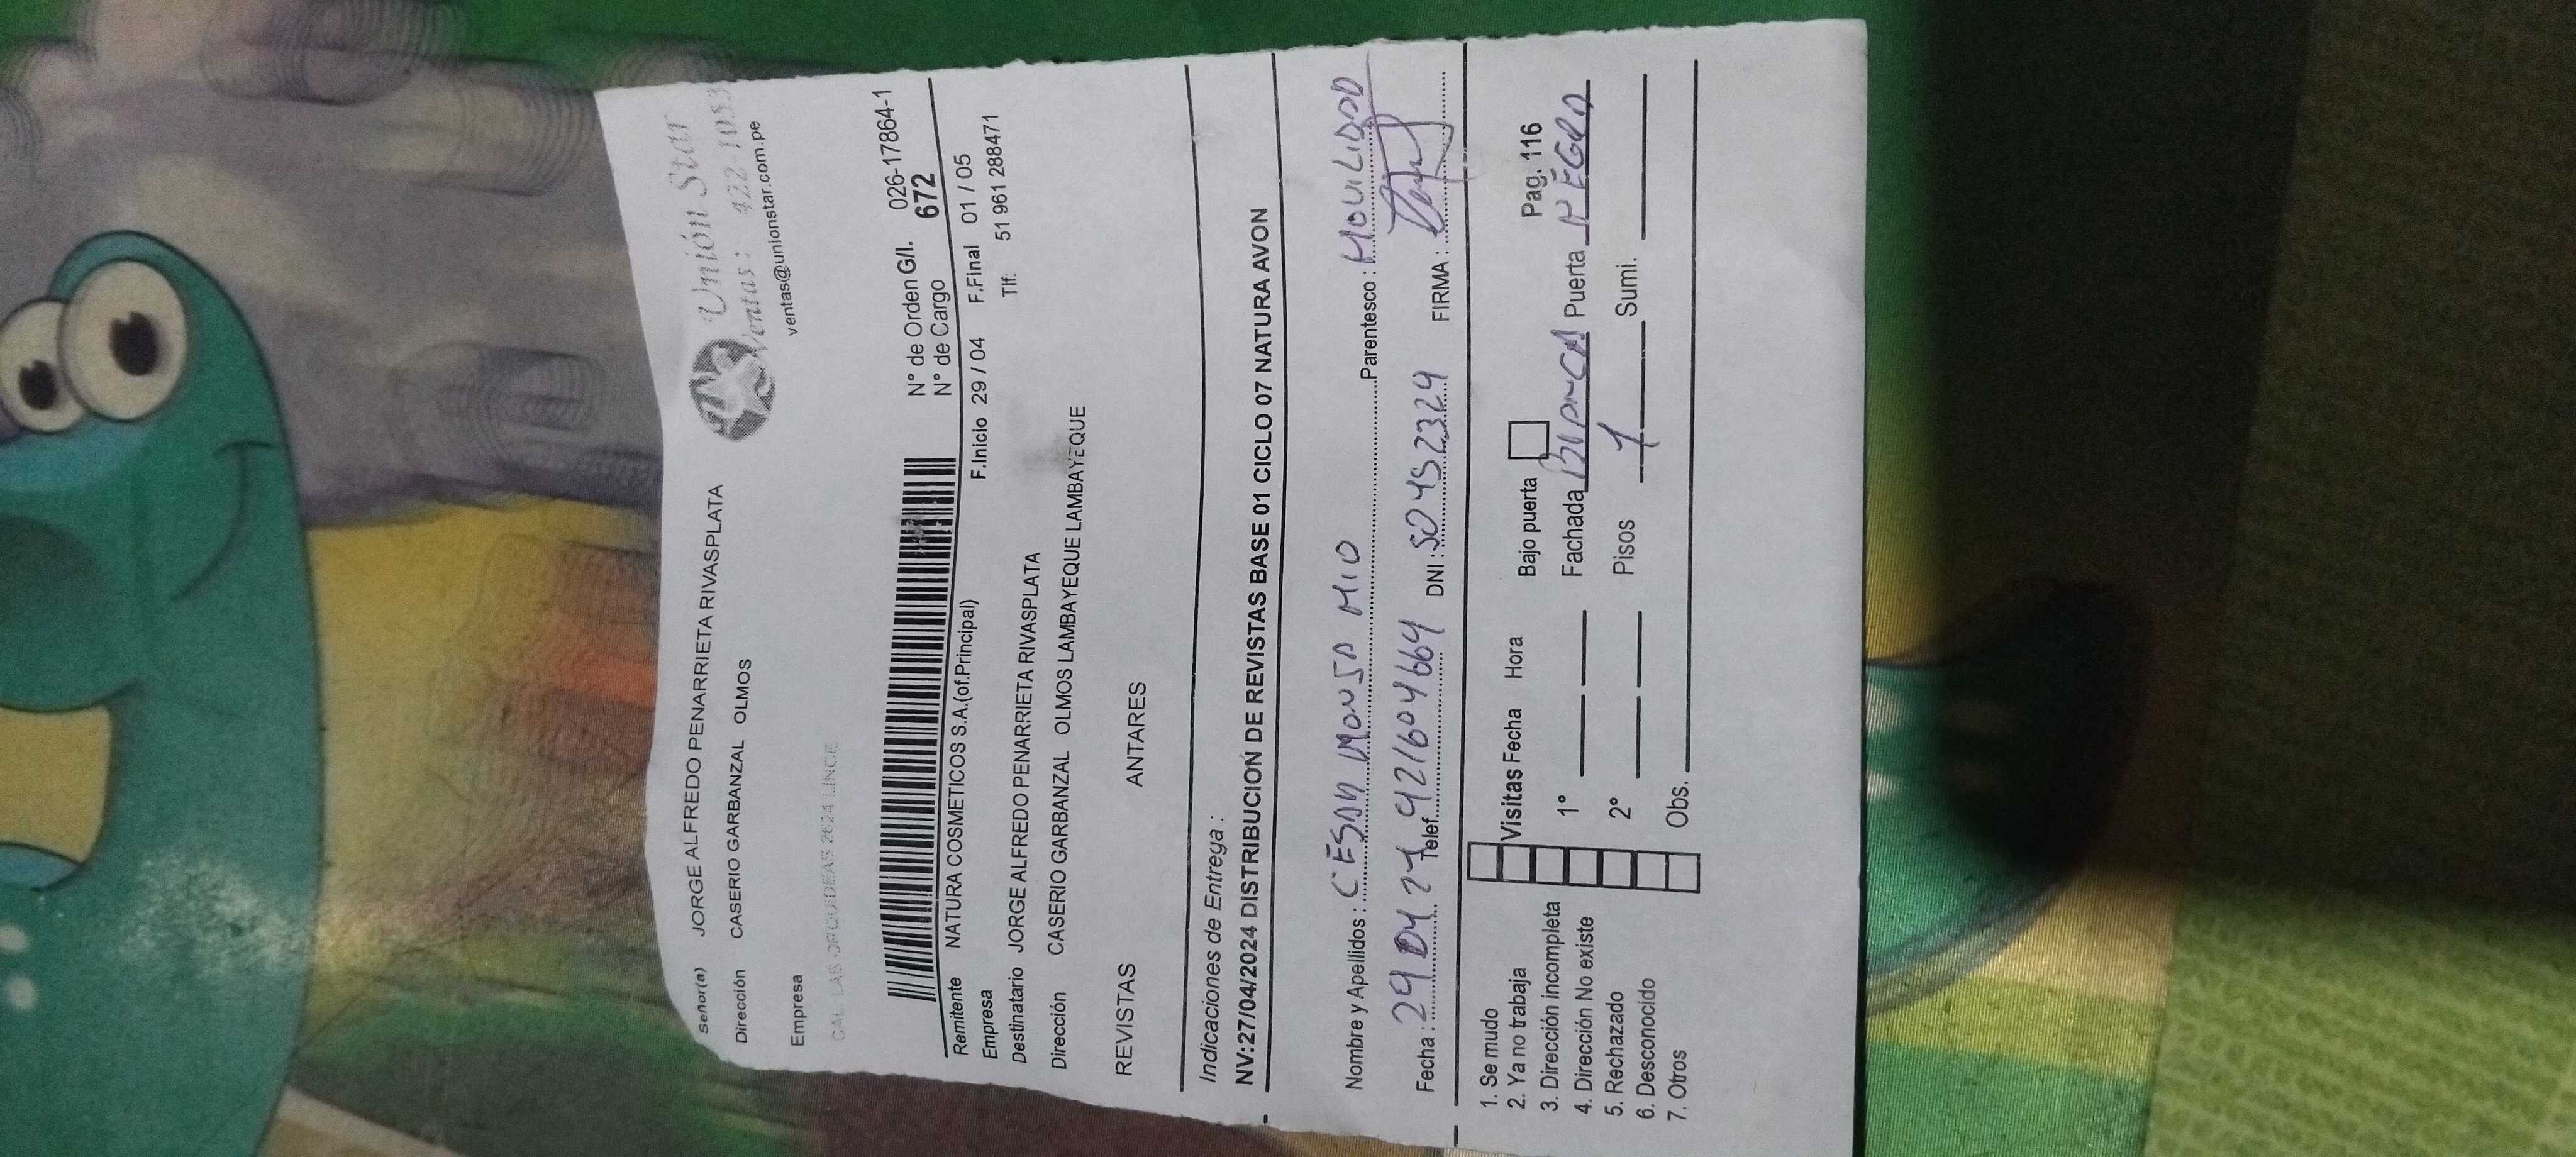 Señor(a) JORGE ALFREDO PENARRIETA RIVASPLATA
Unión Star
Dirección CASERIO GARBANZAL OLMOS
Ventas: 422-1053
ventas@unionstar.com.pe
Empresa
CAL LAS ORQUIDEAS 2624 LINCE
N° de Orden G/I. 026-17864-1
N° de Cargo 672
Remitente NATURA COSMETICOS S.A.(of.Principal) F.Inicio 29 / 04 F.Final 01 / 05
Empresa Tlf. 51 961 288471
Destinatario JORGE ALFREDO PENARRIETA RIVASPLATA
Dirección CASERIO GARBANZAL OLMOS LAMBAYEQUE LAMBAYEQUE
REVISTAS ANTARES
Indicaciones de Entrega :
NV:27/04/2024 DISTRIBUCION DE REVISTAS BASE 01 CICLO 07 NATURA AVON
Nombre y Apellidos : CESAR MIO Parentesco :
Fecha : 29 04 24 Telef. 921604664 DNI : FIRMA :
1. Se mudo
2. Ya no trabaja
3. Dirección incompleta
4. Dirección No existe
5. Rechazado
6. Desconocido
7. Otros
Visitas Fecha Hora Bajo puerta Pag. 116
1° Fachada BLANCA Puerta NEGRA
2° Pisos 1 Sumi.
Obs.